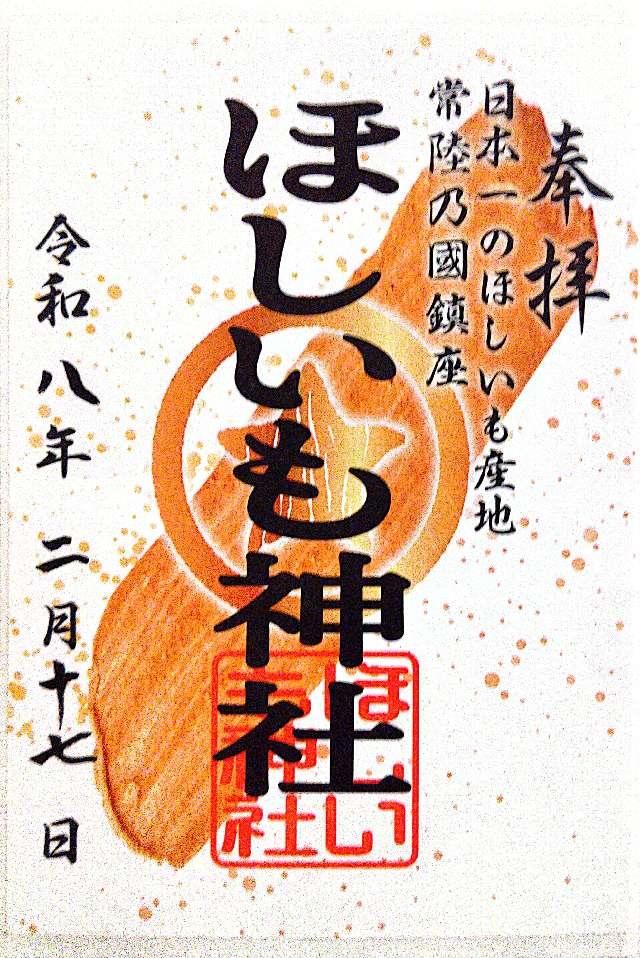 奉拝
日本一のほしいも産地
常陸乃國鎮座
ほしいも神社
ほしい
も神社
令和八年二月十七日